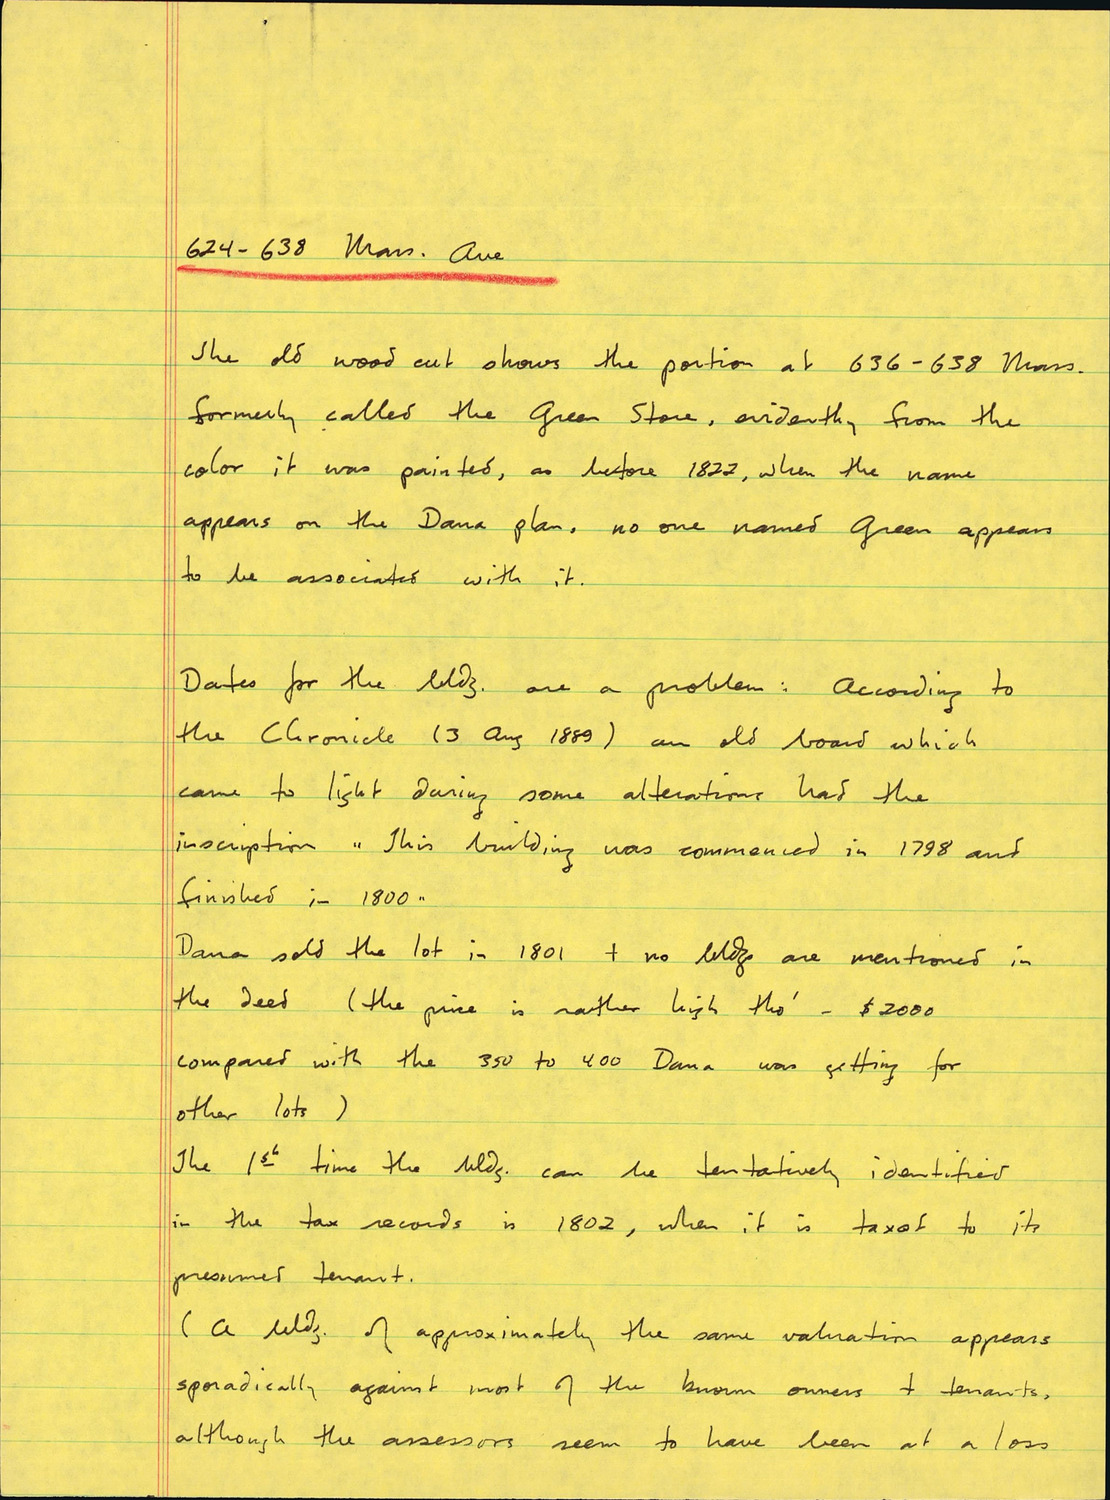 624-638 Mass. Ave
The old wood cut shows the portion at 636-638 Mass.
formerly called the Green Store, evidently from the
color it was painted, as before 1822, when the name
appears on the Dana plan, no one named Green appears
to be associated with it.
Dates for the bldg. are a problem: According to
the Chronicle (3 Aug 1889) an old board which
came to light during some alterations had the
inscription "This building was commenced in 1798 and
finished in 1800"
Dana sold the lot in 1801 + no bldgs are mentioned in
the deed (the price is rather high tho' - $2000
compared with the 350 to 400 Dana was getting for
other lots)
The 1st time the bldg. can be tentatively identified
in the tax records is 1802, when it is taxed to its
presumed tenant.
(A bldg. of approximately the same valuation appears
sporadically against most of the known owners + tenants,
although the assessors seem to have been at a loss